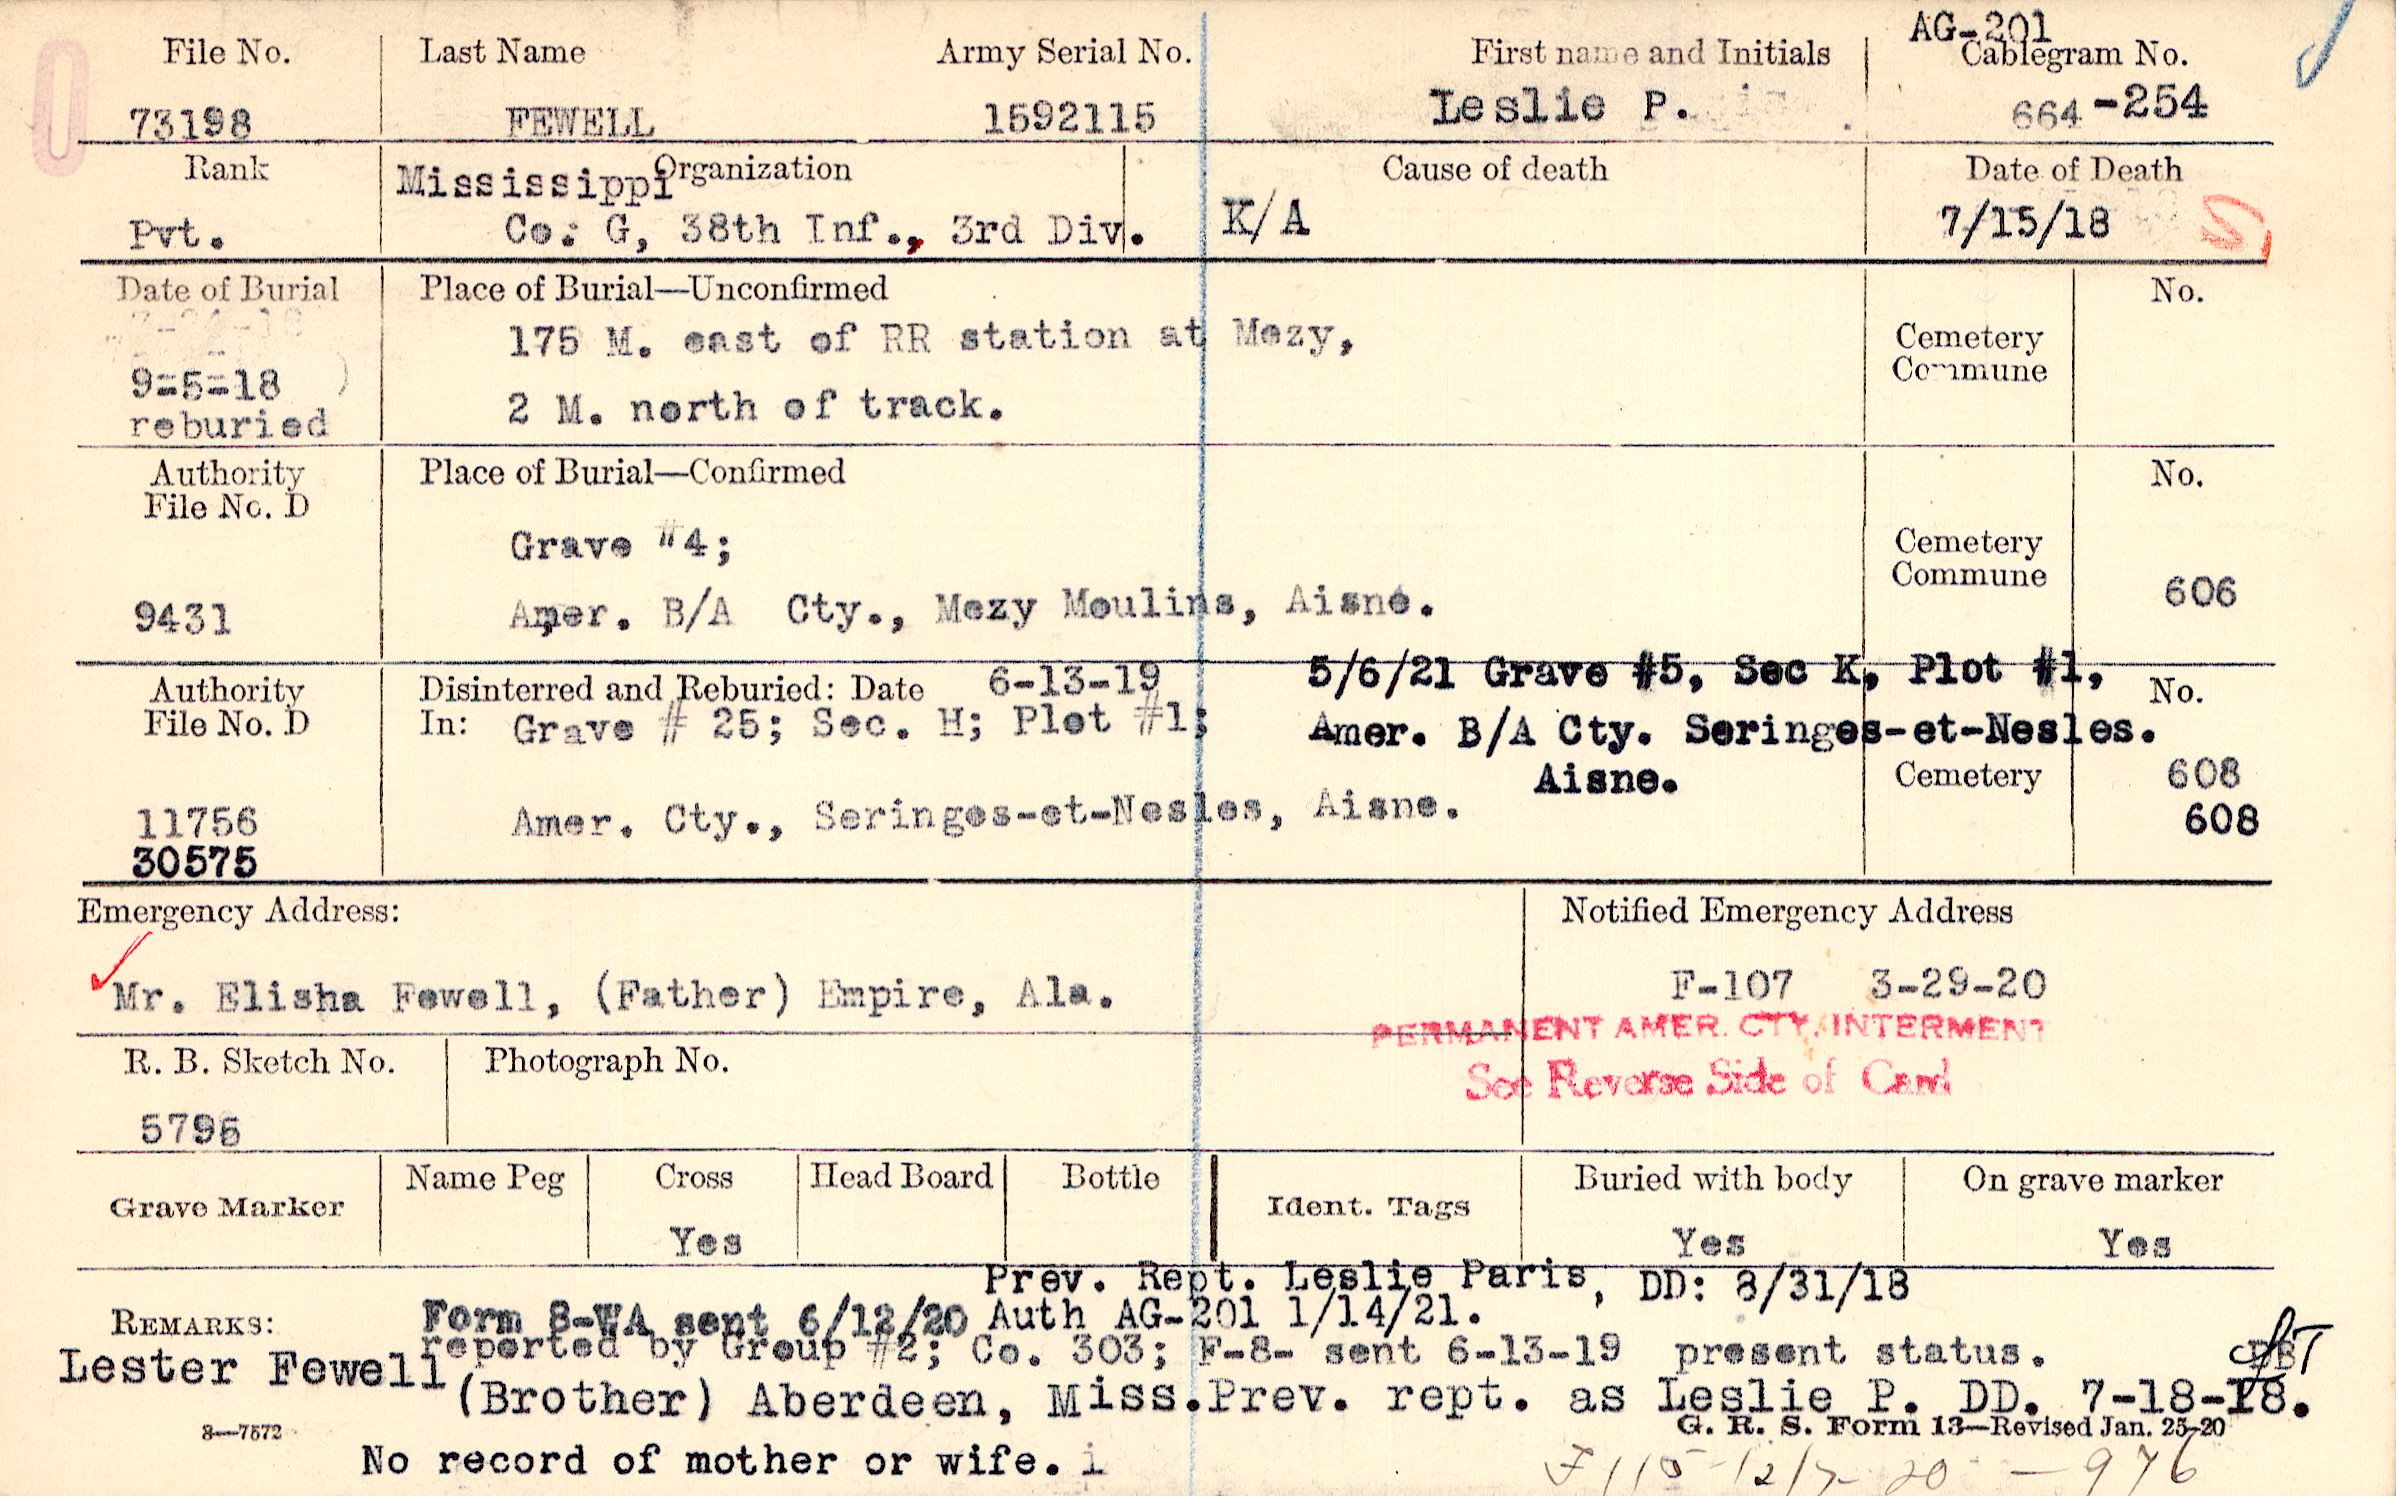 AG-201
File No. Last Name Army Serial No. First name and Initials Cablegram No.
73198 FEWELL 1592115 Leslie P. 664 -254
Rank Mississippi Organization Cause of death Date of Death
Pvt. Co. G, 38th Inf., 3rd Div. K/A 7/15/18
Date of Burial Place of Burial—Unconfirmed No.
175 M. east of RR station at Mezy, Cemetery
Commune
9-5-18
reburied 2 M. north of track.
Authority Place of Burial—Confirmed No.
File No. D
Grave #4; Cemetery
Commune
9431 Amer. B/A Cty., Mezy Moulins, Aisne. 606
5/6/21 Grave #5, Sec K, Plot #1,
Authority Disinterred and Reburied: Date 6-13-19 No.
File No. D In: Grave # 25; Sec. H; Plot #1; Amer. B/A Cty. Seringes-et-Nesles.
Aisne. Cemetery 608
11756 Amer. Cty., Seringes-et-Nesles, Aisne. 608
30575
Emergency Address: Notified Emergency Address
Mr. Elisha Fewell, (Father) Empire, Ala. F-107 3-29-20
PERMANENT AMER. CTY. INTERMENT
R. B. Sketch No. Photograph No. See Reverse Side of Card
5796
Grave Marker Name Peg Cross Head Board Bottle Ident. Tags Buried with body On grave marker
Yes Yes Yes
Prev. Rept. Leslie Paris, DD: 8/31/18
REMARKS: Form 8-WA sent 6/12/20 Auth AG-201 1/14/21.
reported by Group #2; Co. 303; F-8- sent 6-13-19 present status.
Lester Fewell (Brother) Aberdeen, Miss. Prev. rept. as Leslie P. DD. 7-18-18.
3—7572 G. R. S. Form 13—Revised Jan. 25-20
No record of mother or wife. i